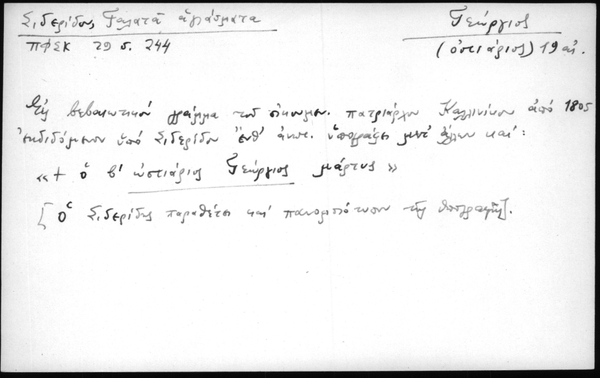 Σιδερίδου Γαλατᾶ ἁγιάσματα
Γεώργιος
ΠΦΣΚ 29 σ. 244
(ὀστιάριος) 19 αἰ.
Εἰς βεβαιωτικόν γράμμα τοῦ οἰκουμεν. πατριάρχου Καλλινίκου ἀπό 1805
ἐκδιδόμενον ὑπό Σιδερίδου ἔνθ' ἀνωτ. ὑπογράφει μετ' ἄλλων καί:
«+ ὁ β' ὠστιάριος Γεώργιος μάρτυς»
[Ὁ Σιδερίδης παραθέτει καί τῆς ὑπογραφῆς].